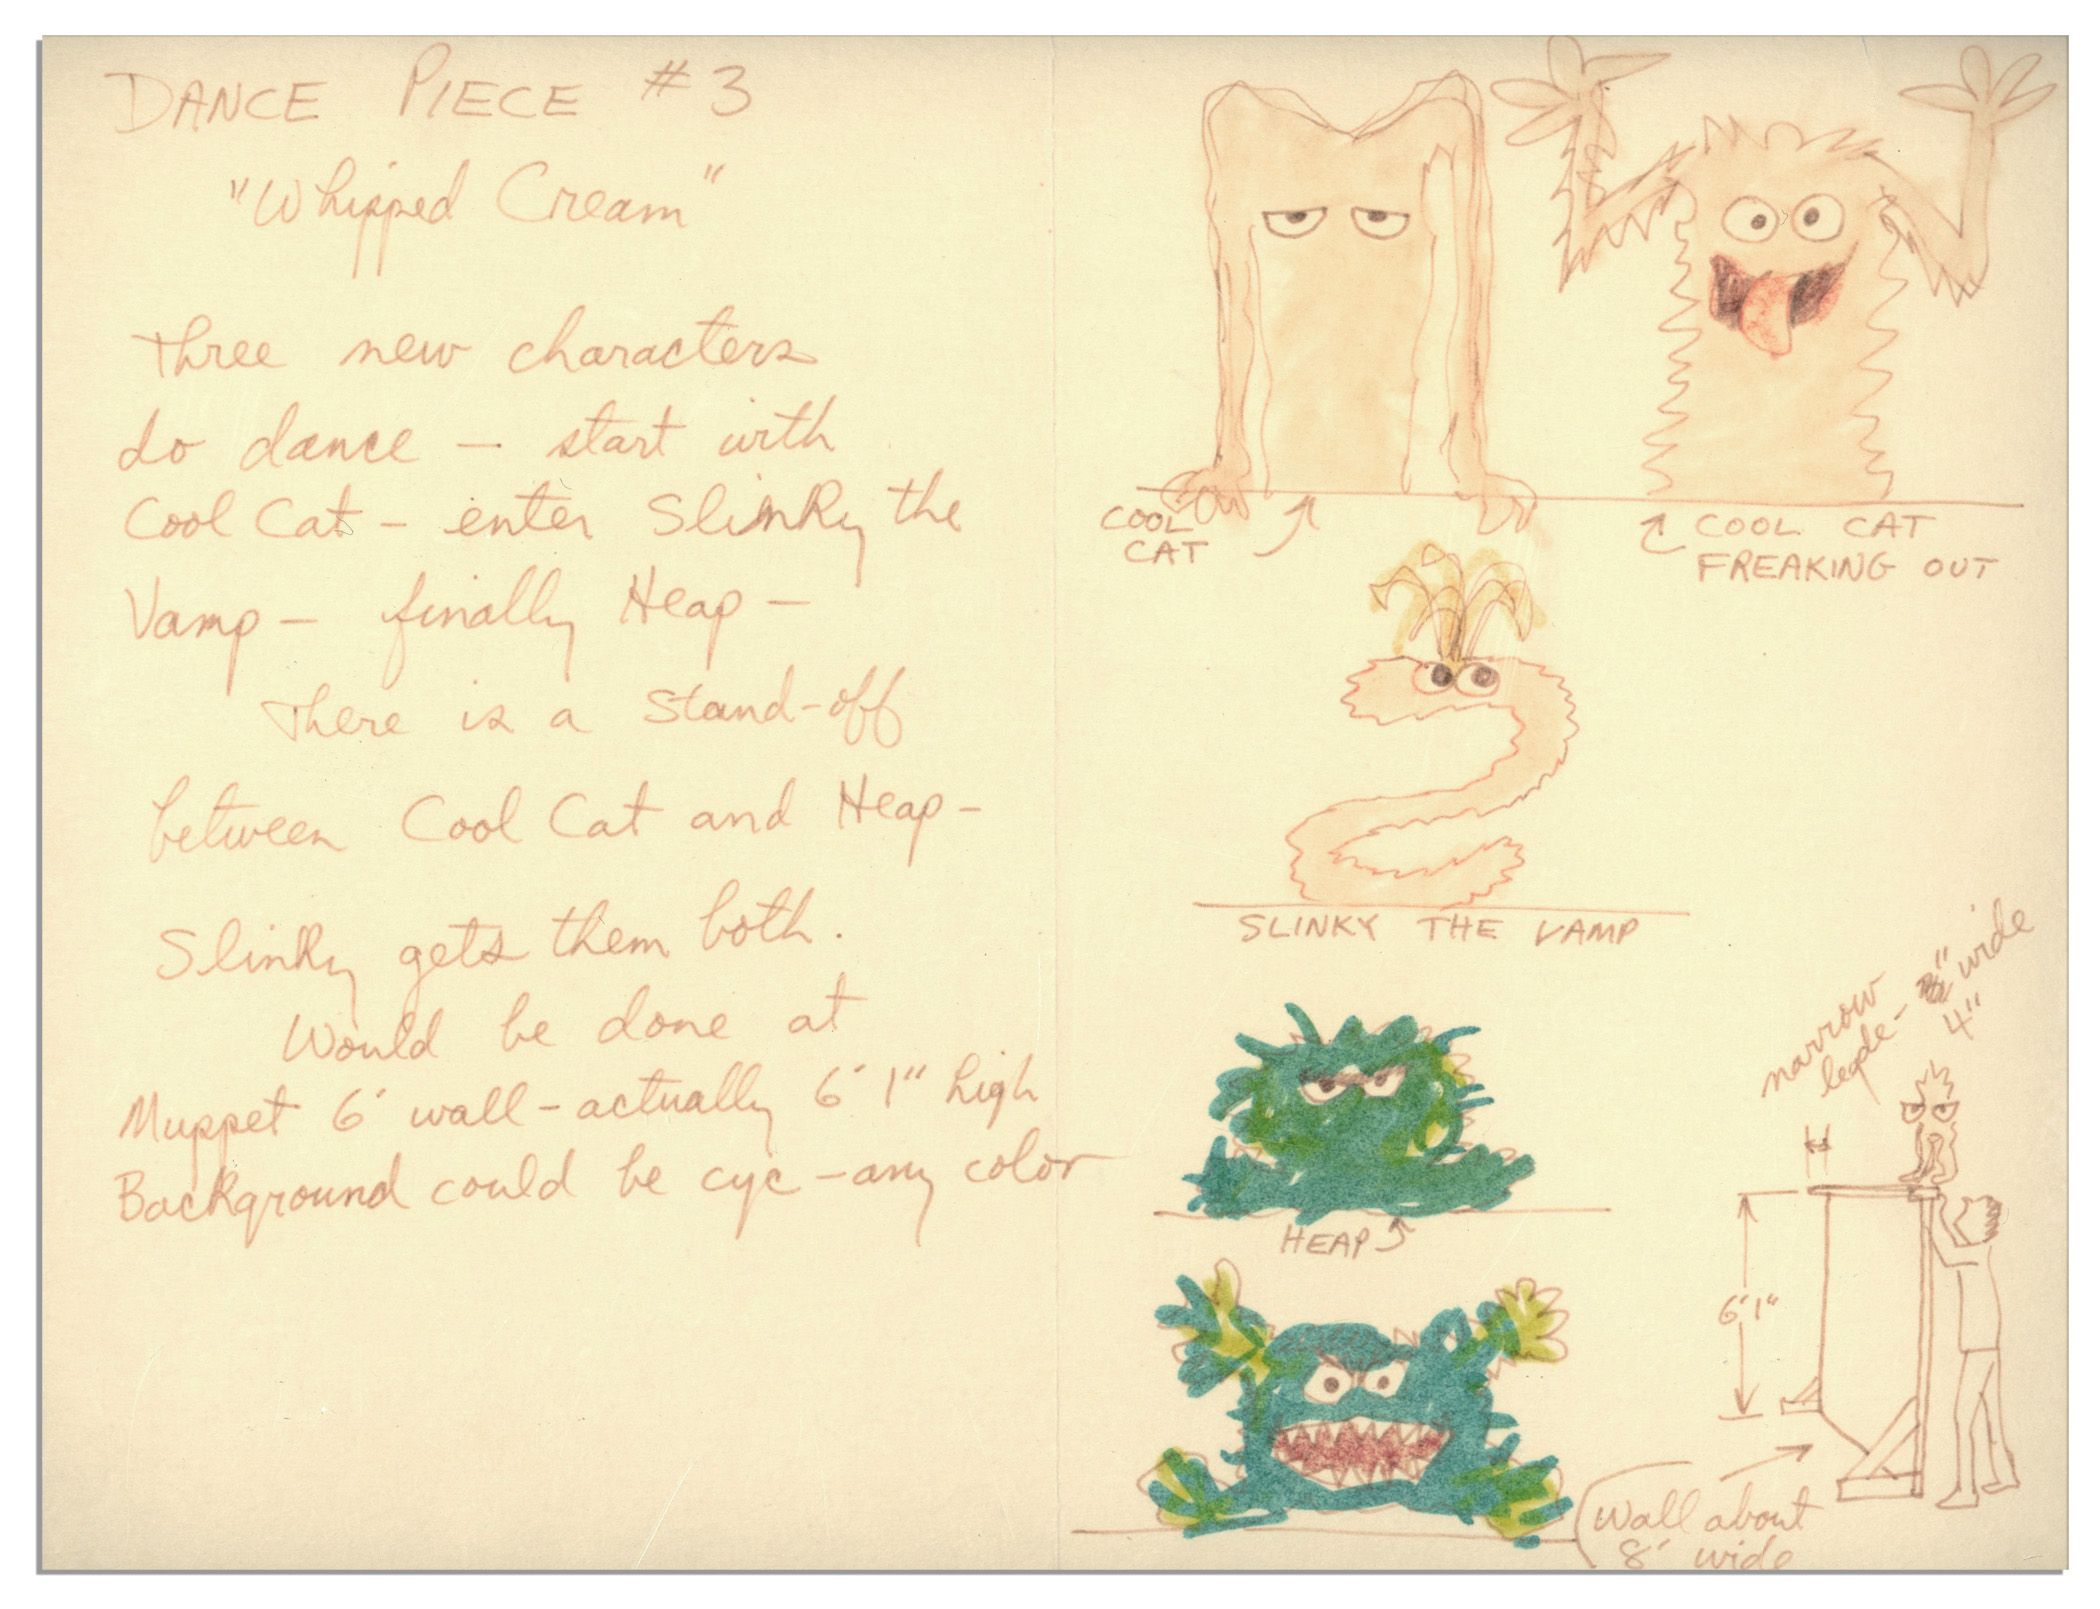 DANCE PIECE #3
"Whipped Cream"
Three new characters
do dance — start with
Cool Cat — enter Slinky the
Vamp — finally Heap —
There is a stand-off
between Cool Cat and Heap —
Slinky gets them both.
Would be done at
Muppet 6' wall - actually 6'1" high
Background could be cyc - any color
COOL
CAT
COOL CAT
FREAKING OUT
SLINKY THE VAMP
HEAP
narrow
" wide
4"
6'1"
Wall about
8' wide